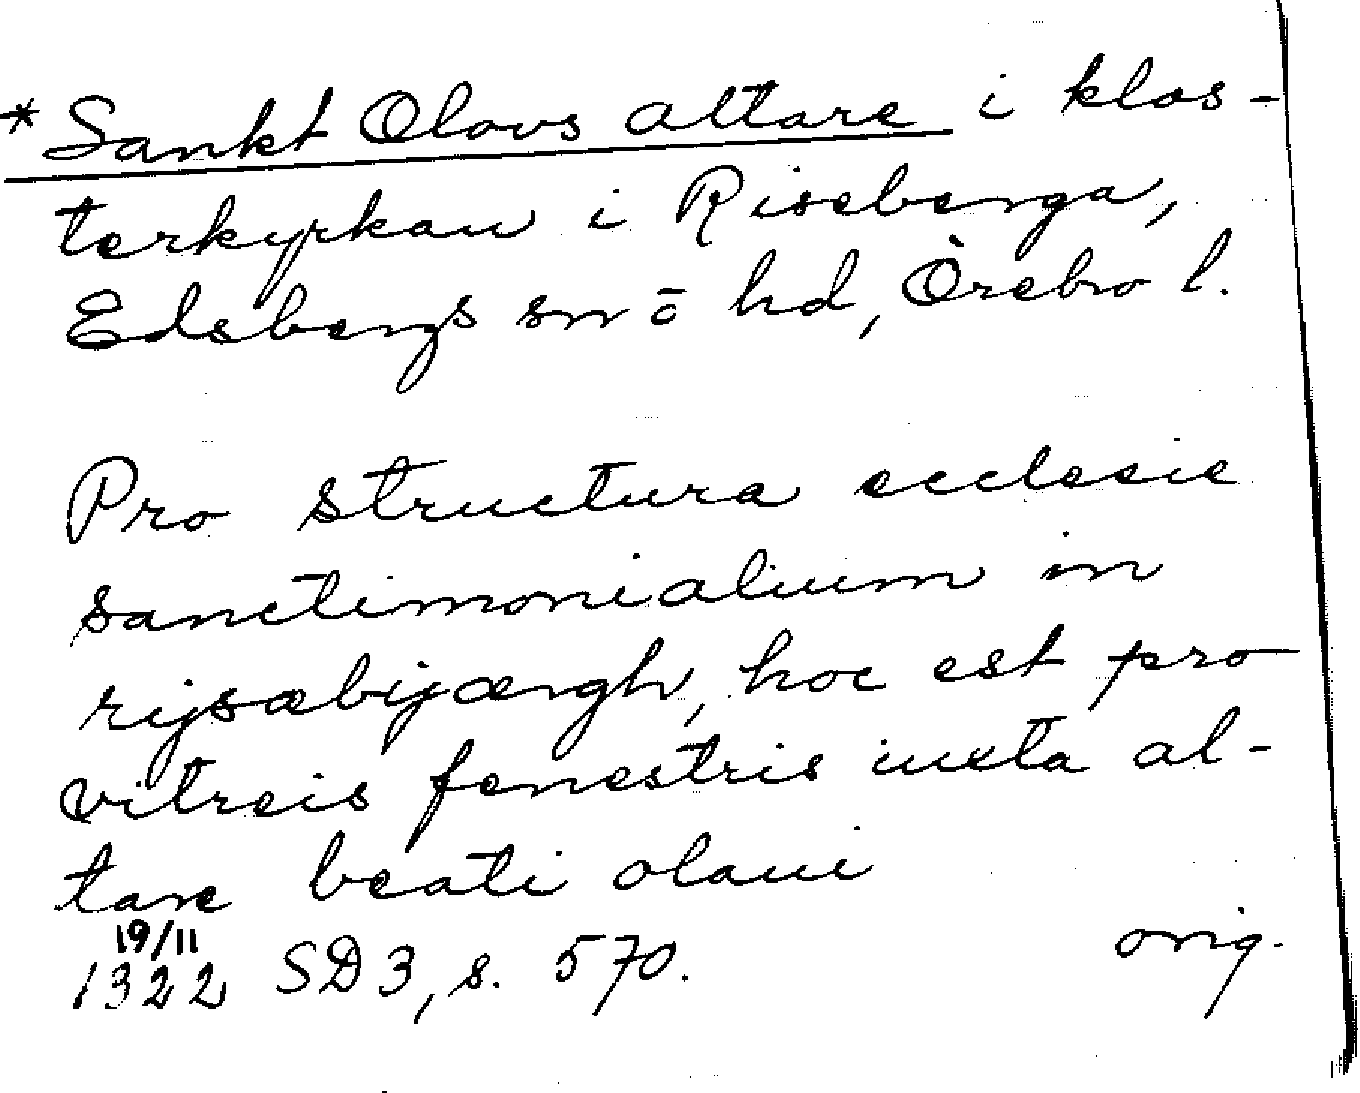 * Sankt Olovs altare i klos-
terkyrkan i Riseberga,
Edsbergs sn ō hd, Örebro l.
Pro structura ecclesie
sanctimonialium in
rijsæbijærgh, hoc est pro
vitreis fenestris iuxta al-
tare beati olaui
19/11
1322 SD 3, s. 570. orig.